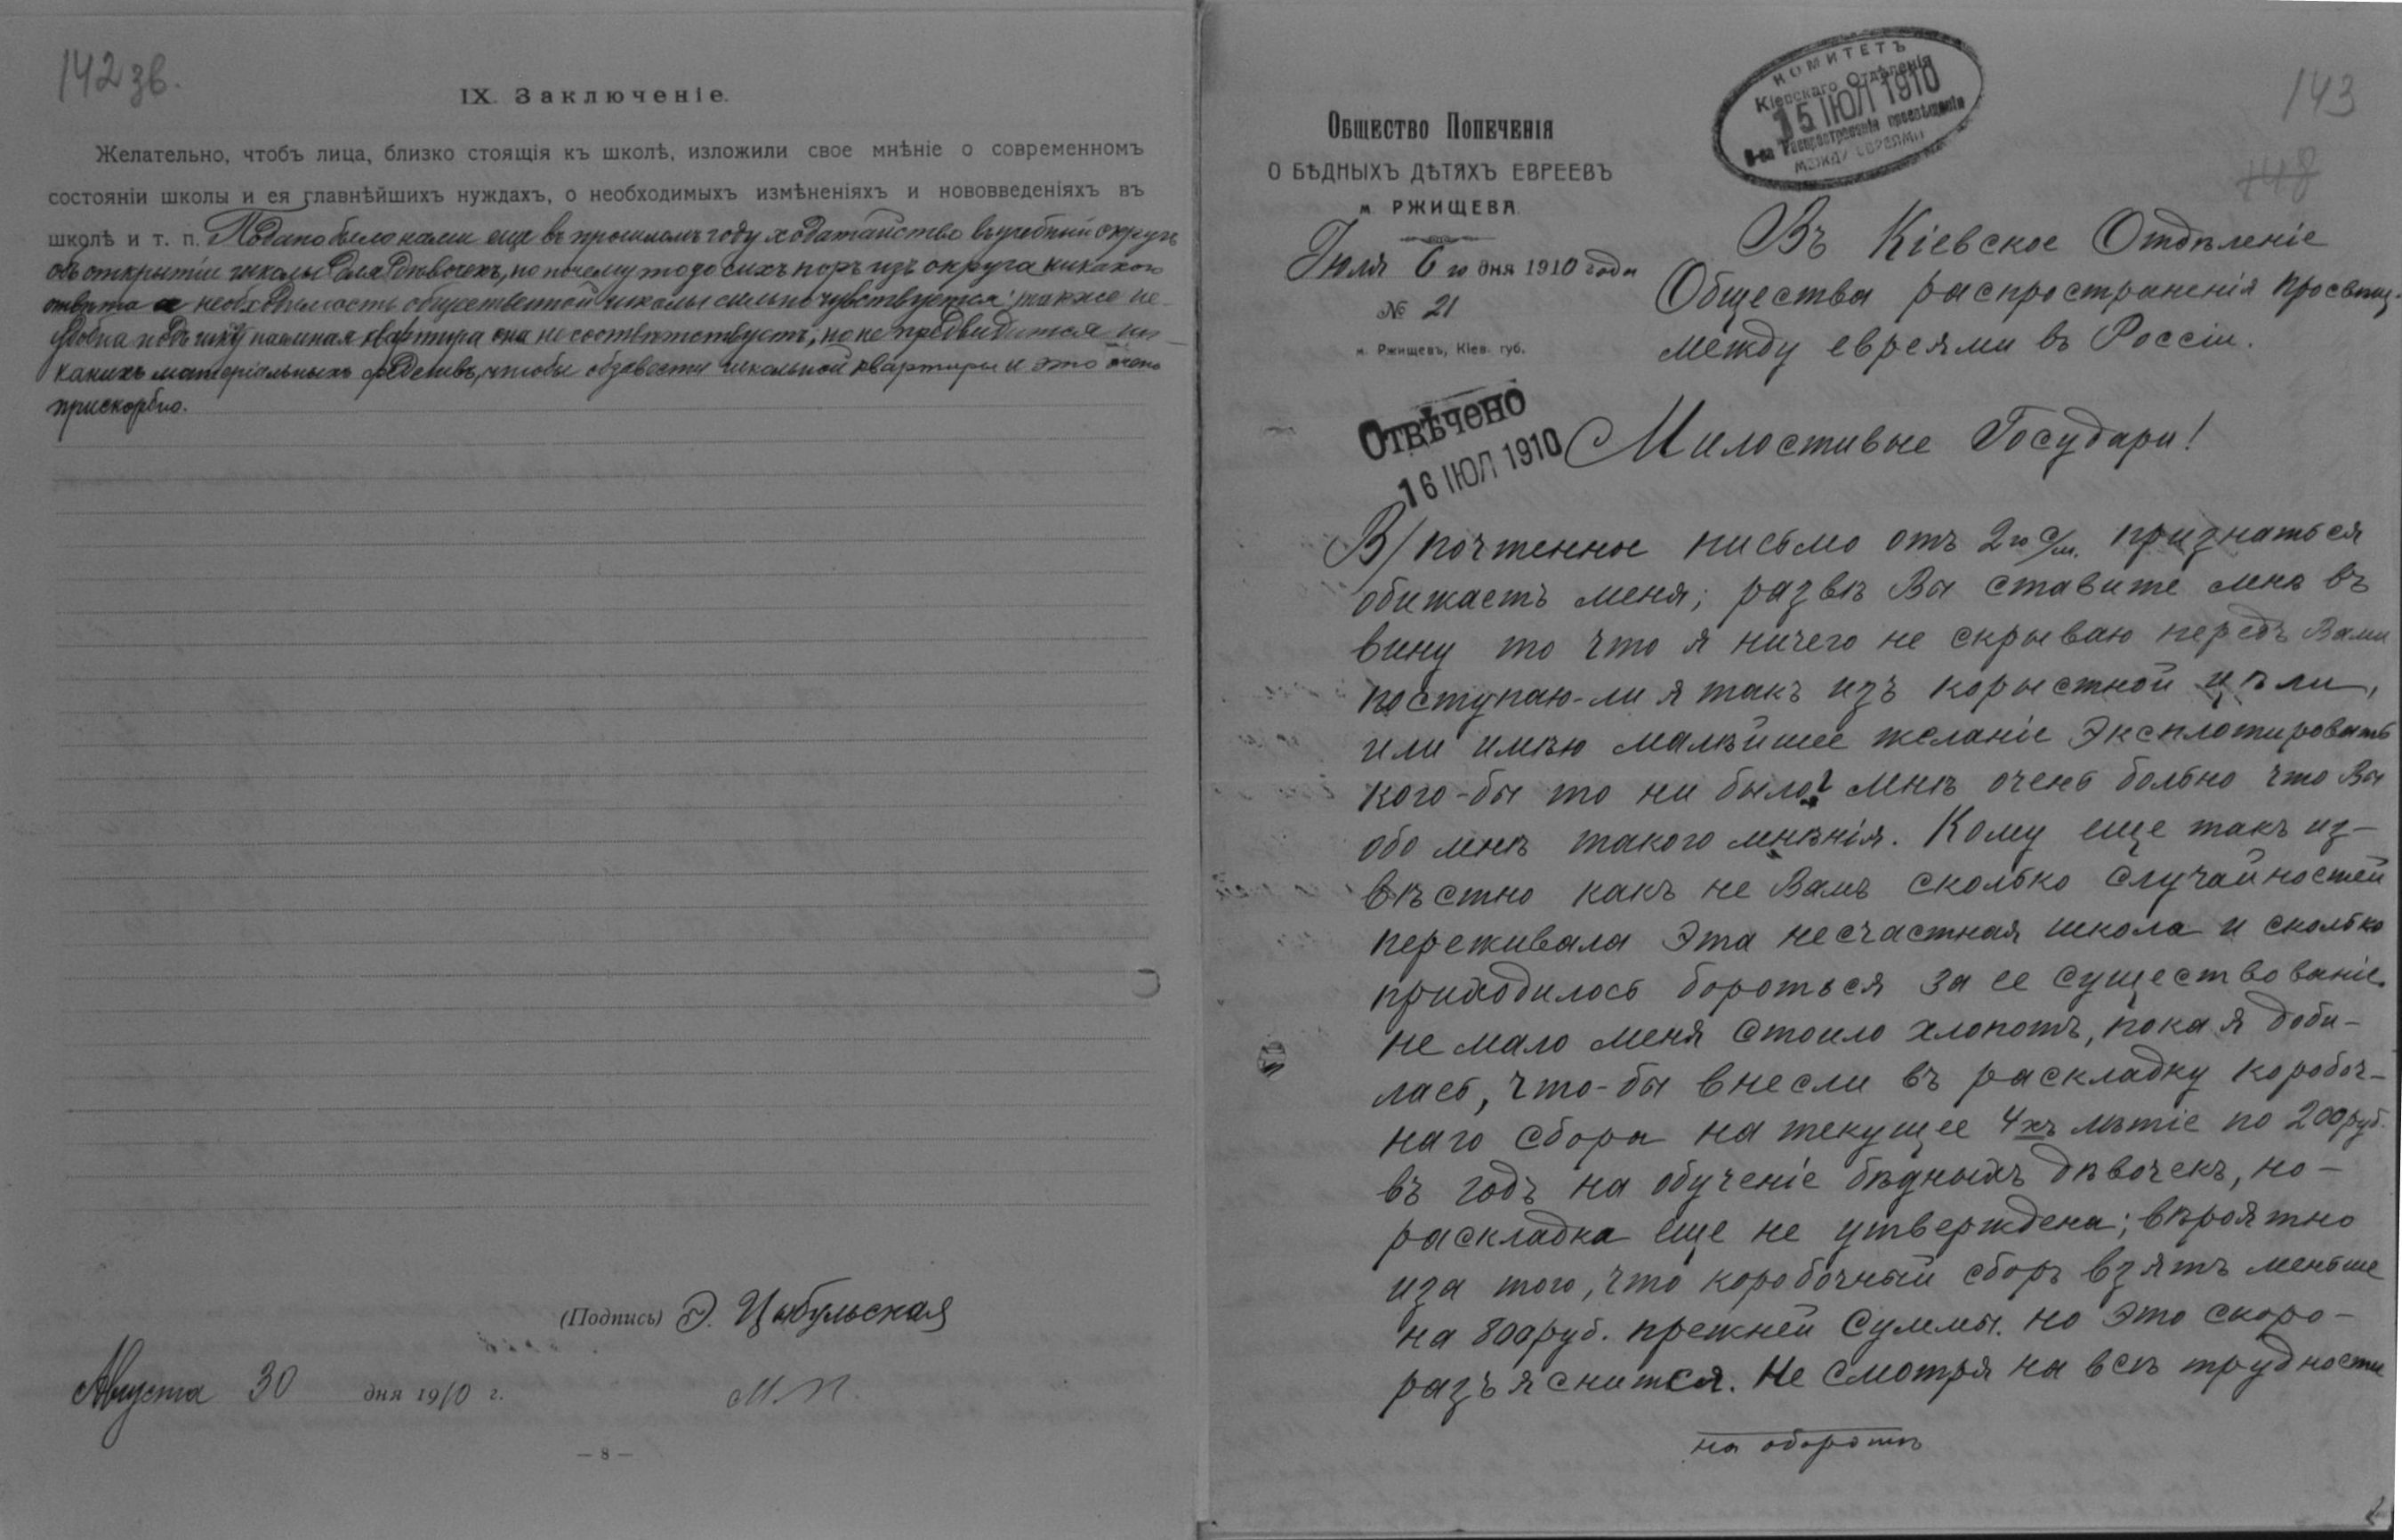 142 зв.
IX. Заключеніе.
Желательно, чтобъ лица, близко стоящія къ школѣ, изложили свое мнѣніе о современномъ
состояніи школы и ея главнѣйшихъ нуждахъ, о необходимыхъ измѣненіяхъ и нововведеніяхъ въ
школѣ и т. п. Подано было нами еще въ прошломъ году ходатайство въ учебный округъ
объ открытіи школы для дѣвочекъ, но почему то до сихъ поръ изъ округа никакого
отвѣта а необходимость общественной школы сильно чувствуется; также не-
удобна наемная квартира она не соотвѣтствуетъ, но не предвидится ни-
какихъ матеріальныхъ средствъ, чтобы обзавести школьной квартиры и это очень
прискорбно.
(Подпись) Э. Цыбульская
Августа 30 дня 1910 г.
М. П.
— 8 —
КОМИТЕТЪ
Кіевскаго Отдѣленія
15 ІЮЛ 1910
О-ва Распространенія просвѣщенія
между евреями
143
148
Общество Попеченія
О БѢДНЫХЪ ДѢТЯХЪ ЕВРЕЕВЪ
м. РЖИЩЕВА.
Іюля 6го дня 1910 года
№ 21
м. Ржищевъ, Кіев. губ.
Въ Кіевское Отдѣленіе
Общества распространенія просвѣщ.
между евреями въ Россіи.
Отвѣчено
16 ІЮЛ 1910
Милостивые Государи!
В/ почтенное письмо отъ 2го с/м. признаться
обижаетъ меня; развѣ Вы ставите мнѣ въ
вину то что я ничего не скрываю передъ Вами
поступаю-ли я такъ изъ корыстной цѣли,
или имѣю малѣйшее желаніе эксплотировать
кого-бы то ни было? мнѣ очень больно что Вы
обо мнѣ такого мнѣнія. Кому еще такъ из-
вѣстно какъ не Вамъ сколько случайностей
переживала эта несчастная школа и сколько
приходилось бороться за ее существованіе.
не мало меня стоило хлопотъ, пока я доби-
лась, что-бы внесли въ раскладку коробоч-
наго сбора на текущее 4хъ лѣтіе по 200 руб.
въ годъ на обученіе бѣдныхъ дѣвочекъ, но-
раскладка еще не утверждена; вѣроятно
иза того, что коробочный сборъ взятъ меньше
на 800 руб. прежней суммы. но это скоро-
разъяснится. Не смотря на всѣ трудности
на оборотѣ